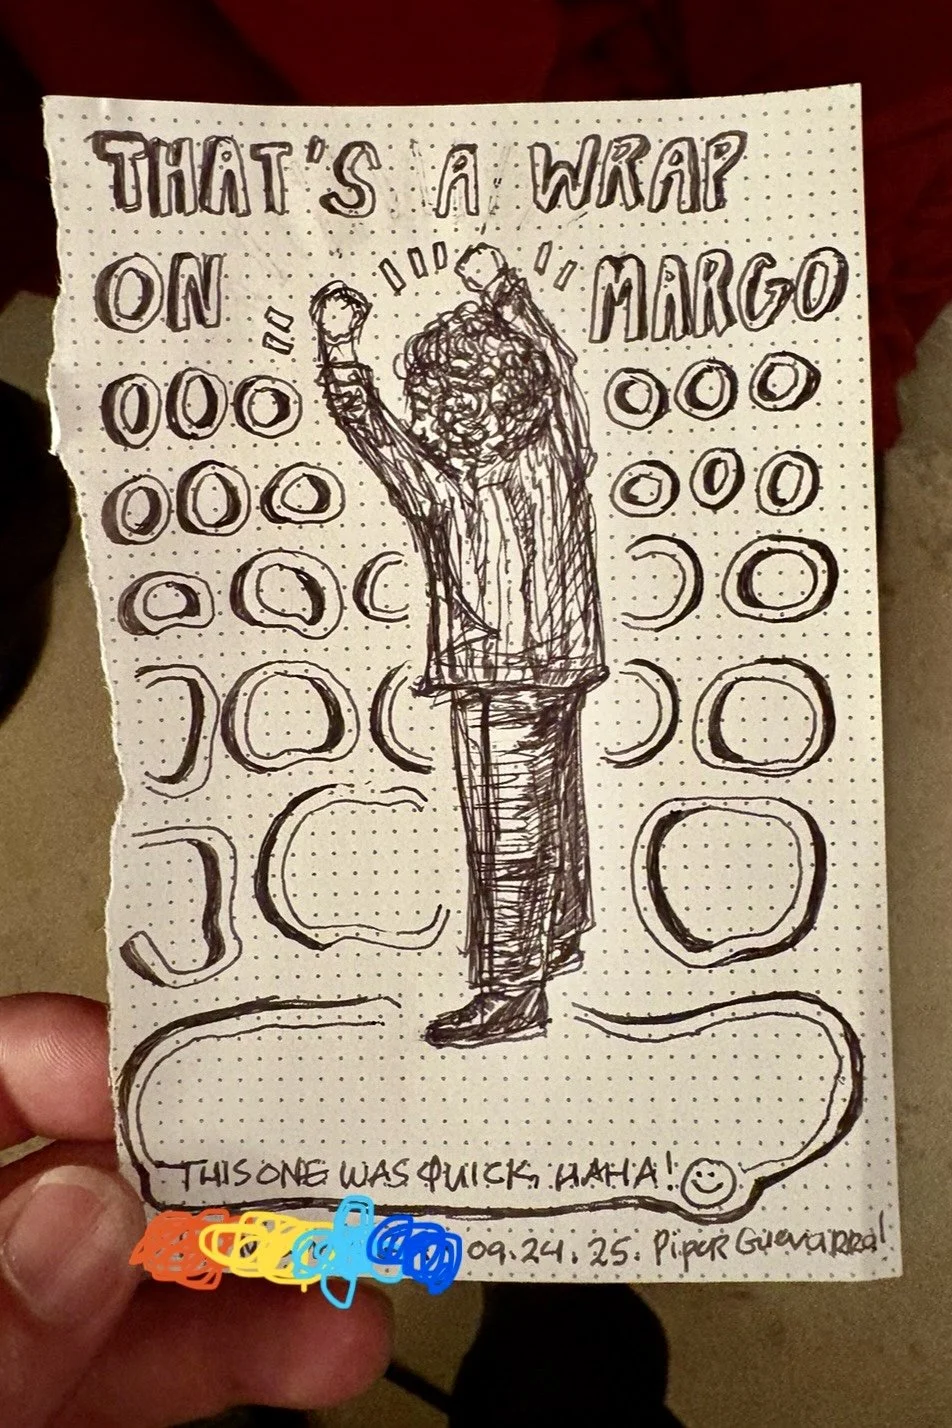 THAT'S A WRAP
ON MARGO
THIS ONE WAS QUICK. HAHA!
09.24.25. Piper Guevarra!